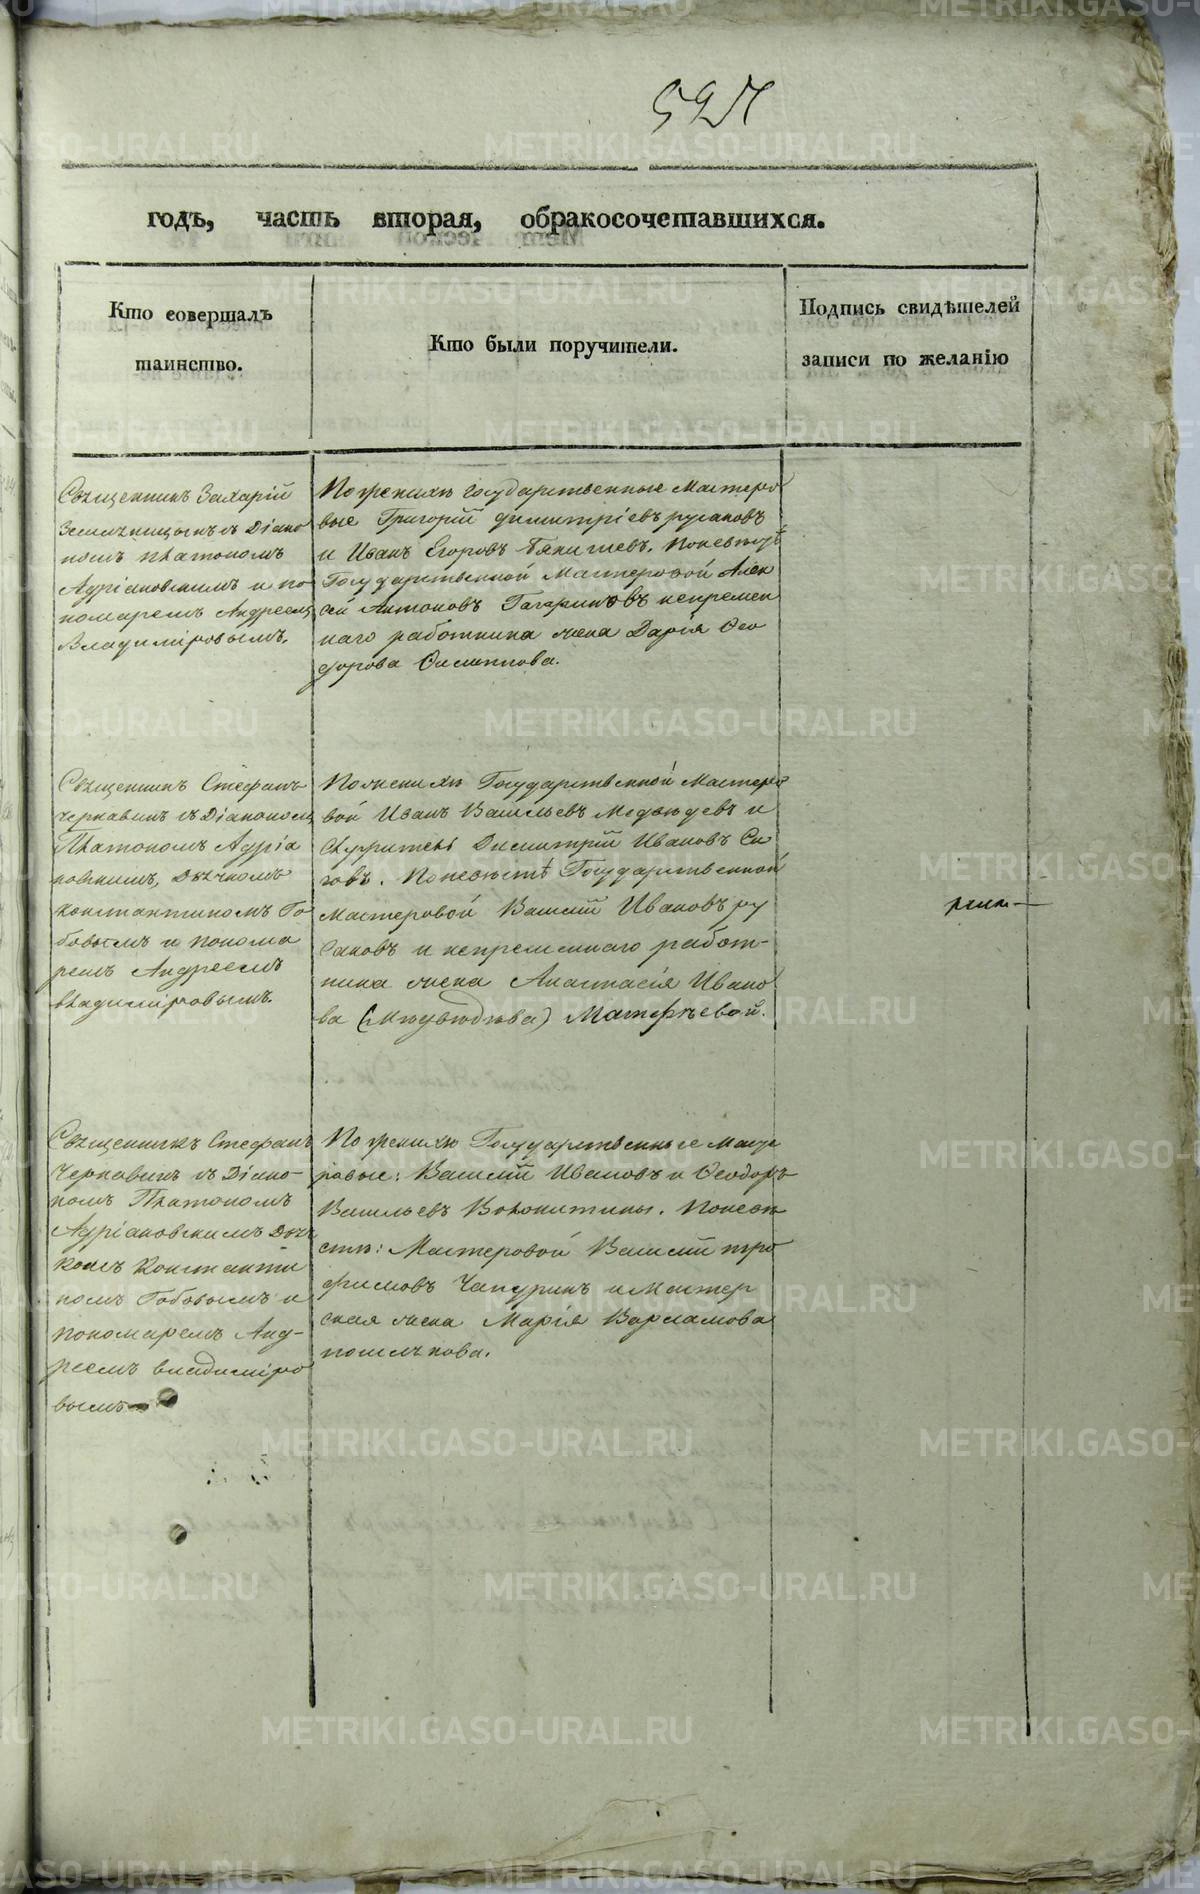 527
годъ, часть вторая, обракосочетавшихся.
Кто совершалъ
таинство.
Кто были поручители.
Подпись свидѣтелей
записи по желанію
Священникъ Захарій
съ Діако
номъ Платономъ
Адріановскимъ и по
номаремъ Андреемъ
Владиміровымъ.
По женихѣ государственные Мастеро
вые Григорій Димитріевъ русаковъ
и Иванъ Егоровъ Бякишевъ. Поневѣстѣ
Государственной Мастеровой Алек
сѣй Антоновъ Гагаринъ непремен
наго работника жена Дарія Ѳео
дорова
Священникъ Стефанъ
Чернавинъ съ Діакономъ
Платономъ Адріа
новскимъ, Дьячкомъ
Константиномъ Го
бовымъ и понома
ремъ Андреемъ
владиміровымъ.
По женихѣ Государственной Мастеро
вой Иванъ Васильевъ Медвѣдевъ и
Димитрій Ивановъ Си
говъ. Поневѣстѣ Государственной
мастеровой Василій Ивановъ ру
саковъ и непременнаго работ-
ника жена Анастасія Ивано
ва (Медвѣдѣва) Матфѣевой.
Священникъ Стефанъ
Чернавинъ съ Діако-
номъ Платономъ
Адріановскимъ Дьяч
комъ Константи
номъ Гобовымъ и
пономаремъ Анд-
реемъ владиміро
вымъ
По женихѣ Государственные Масте
ровые: Василій Ивановъ и Ѳеодоръ
Васильевъ Волокитины. Поневѣ
стѣ: Мастеровой Василій тро
фимовъ Чапуринъ и Мастер
ская жена Марія Варламова